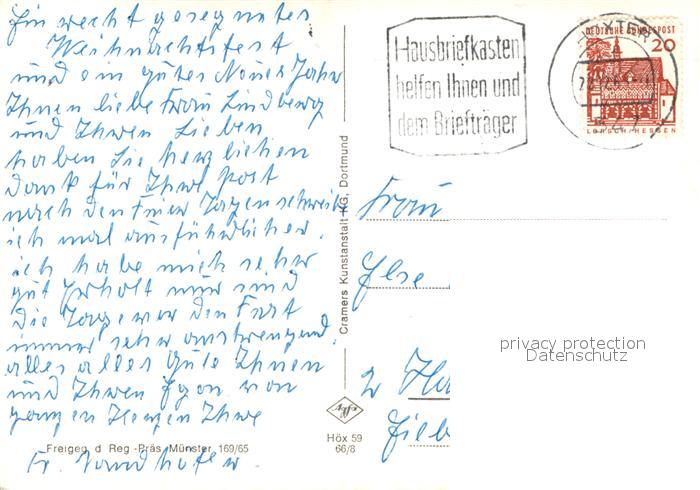 Ein recht gesegnetes
Weihnachtsfest
und ein gutes Neues Jahr
Ihnen liebe Frau Lindberg
und Ihren Lieben
haben Sie herzlichen
Dank für Ihre Post
nach den Feier Tagen schreibe
ich mal ausführlicher.
ich habe mich sehr
gut Erholt nur sind
die Tage vor den Fest
immer sehr anstrengend.
alles alles Gute Ihnen
und Ihren Egon von
ganzen Herzen Ihre
Fr.
Freigeg. d. Reg.-Präs. Münster 169/65
Cramers Kunstanstalt KG, Dortmund
Höx 59
66/8
Hausbriefkasten
helfen Ihnen und
dem Briefträger
DEUTSCHE BUNDESPOST
20
LORSCH/HESSEN
Frau
Ilse
privacy protection
Datenschutz